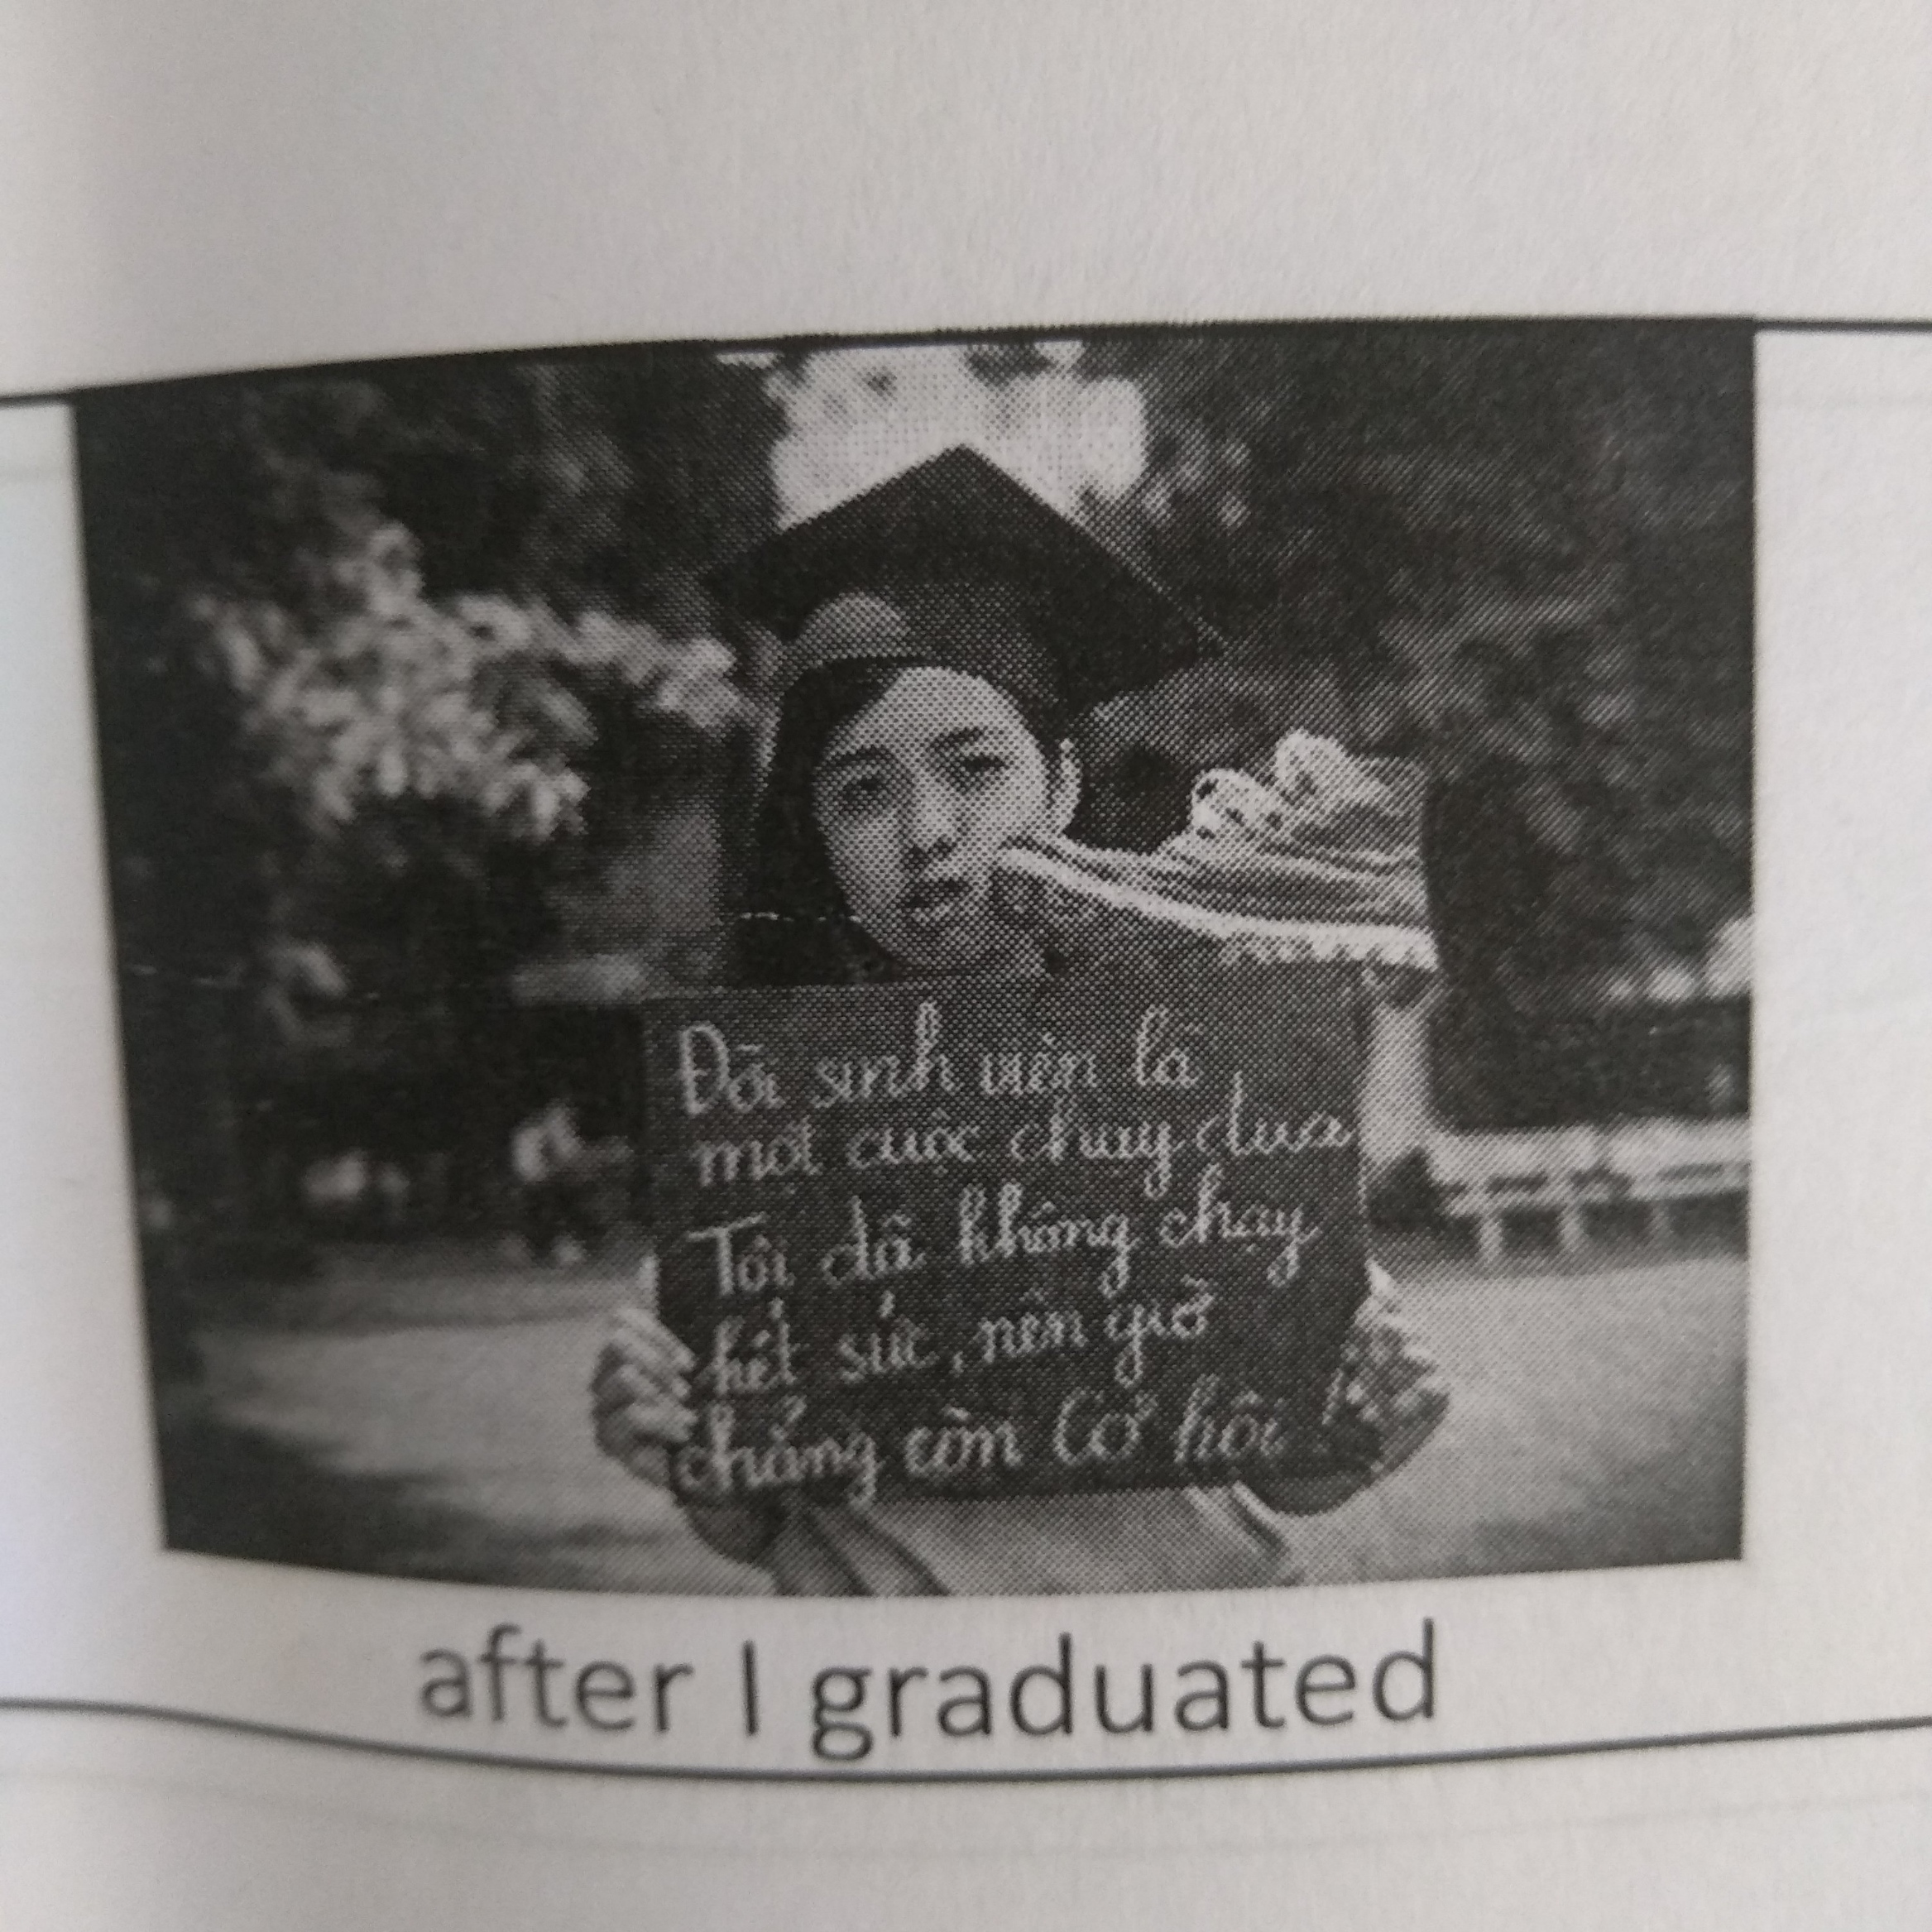 Đời sinh viên là
một cuộc chạy đua
Tôi đã không chạy
hết sức, nên giờ
chẳng còn cơ hội !
after I graduated